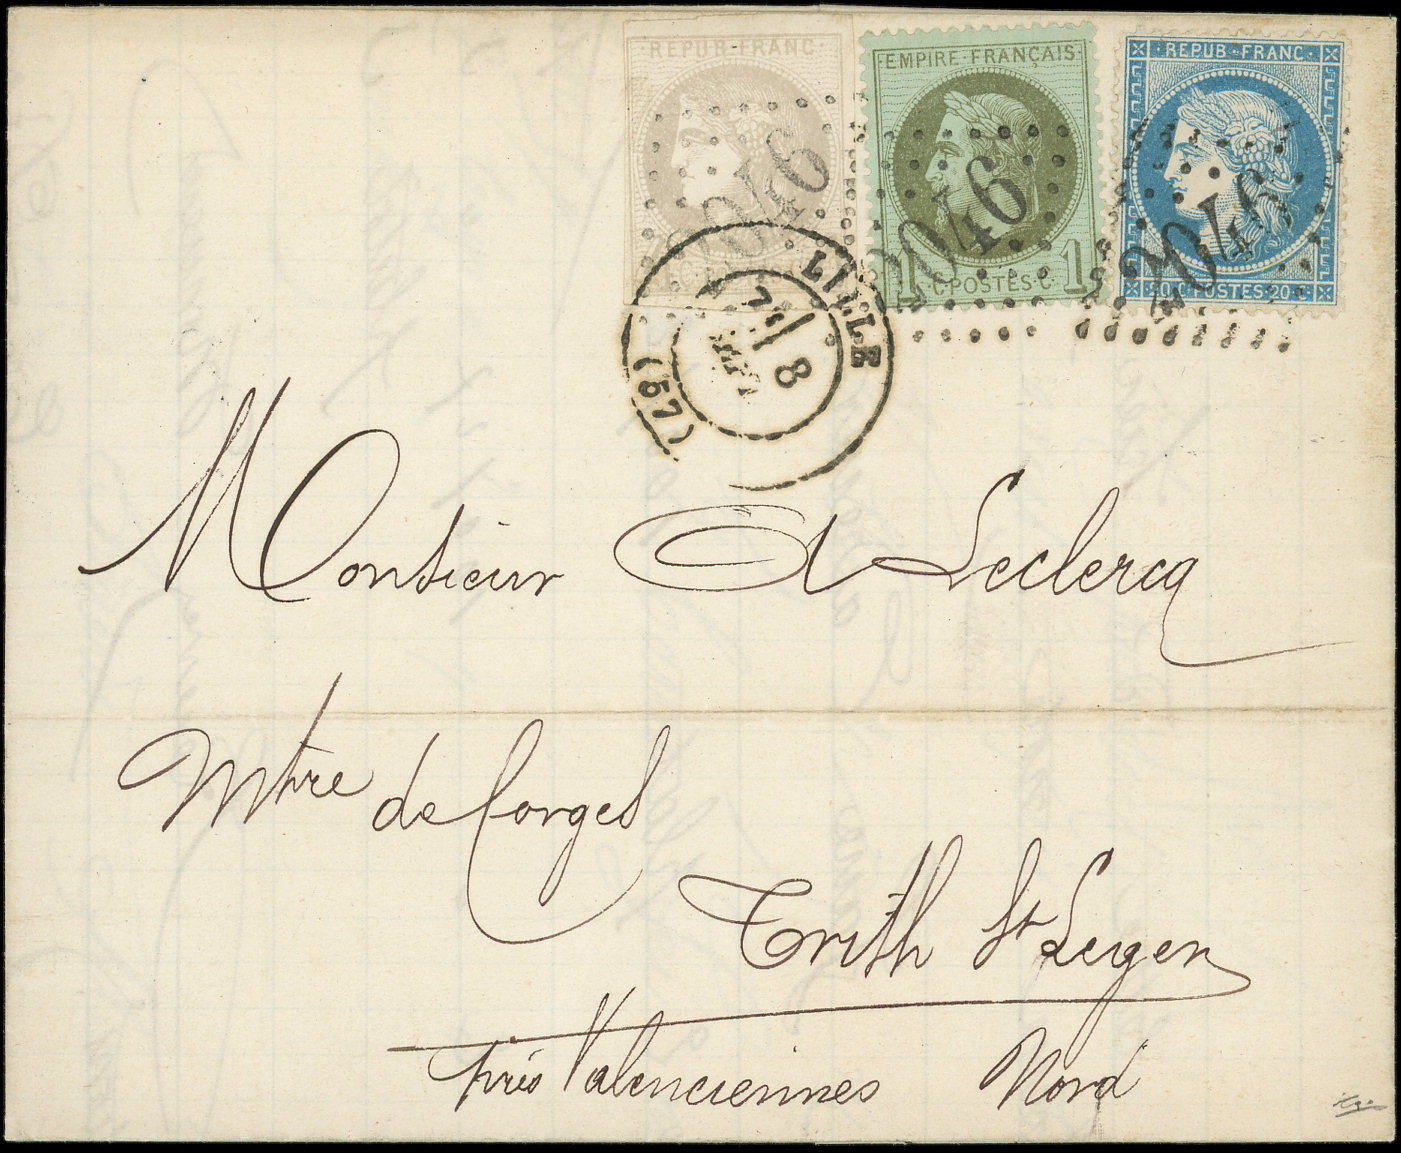 REPUB·FRANC
EMPIRE FRANÇAIS
1 C POSTES C 1
REPUB·FRANC
20 C POSTES 20 C
2046
2046
2046
LILLE
8
(57)
Monsieur A Leclercq
Mtre de forges
Trith St Leger
près Valenciennes Nord